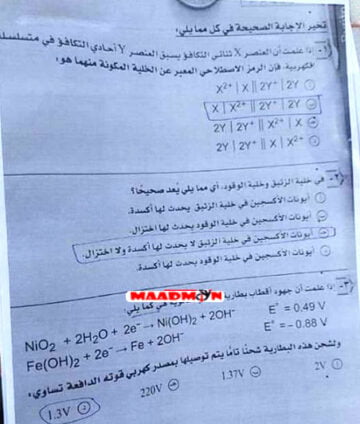 تخير الإجابة الصحيحة في كل مما يلي:
١- إذا علمت أن العنصر X ثنائي التكافؤ يسبق العنصر Y أحادي التكافؤ في متسلسلة
الكهربية، فإن الرمز الاصطلاحي المعبر عن الخلية المكونة منهما هو:
X²⁺ | X || 2Y⁺ | 2Y
X | X²⁺ || 2Y⁺ | 2Y
2Y | 2Y⁺ || X²⁺ | X
2Y | 2Y⁺ || X | X²⁺
٢- في خلية الزئبق وخلية الوقود، أي مما يلي يُعد صحيحًا؟
أيونات الأكسجين في خلية الزئبق يحدث لها أكسدة.
أيونات الأكسجين في خلية الوقود يحدث لها اختزال.
أيونات الأكسجين في خلية الزئبق لا يحدث لها أكسدة ولا اختزال.
أيونات الأكسجين في خلية الوقود يحدث لها أكسدة.
٣- إذا علمت أن جهود أقطاب بطارية كما يلي:
MAADMOYN
NiO₂ + 2H₂O + 2e⁻ → Ni(OH)₂ + 2OH⁻ E° = 0.49 V
Fe(OH)₂ + 2e⁻ → Fe + 2OH⁻ E° = - 0.88 V
ولشحن هذه البطارية شحنًا تامًا يتم توصيلها بمصدر كهربي قوته الدافعة تساوي:
2V
1.37V
220V
1.3V